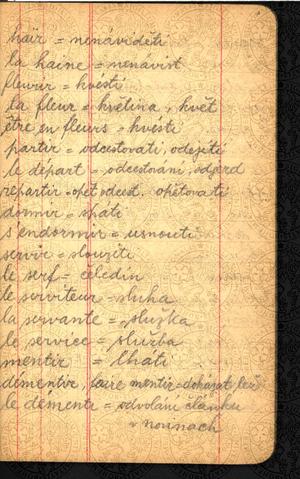 haïr = nenáviděti
la haine = nenávist
fleurir = kvésti
la fleur = květina, květ
être en fleurs = kvésti
partir = odcestovati, odejeti
le départ = odcestování, odjezd
répartir = opět odcest. opětovati
dormir = spáti
s'endormir = usnouti
servir = sloužiti
le serf = čeledín
le serviteur = sluha
la servante = služka
le service = služba
mentir = lháti
démentir, faire mentir = dokázat lež
le démenti = odvolání článku
v novinách